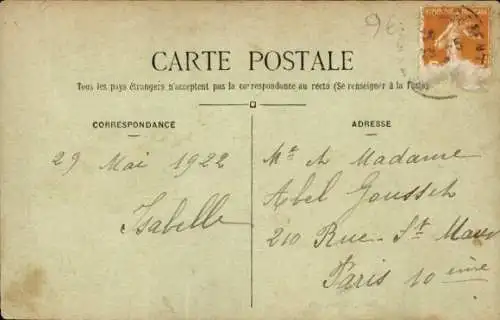 96
CARTE POSTALE
Tous les pays étrangers n'acceptent pas la correspondance au recto (Se renseigner à la Poste)
CORRESPONDANCE
29 Mai 1922
Isabelle
ADRESSE
Mr et Madame
Abel Gousset
210 Rue St Maur
Paris 10 ème